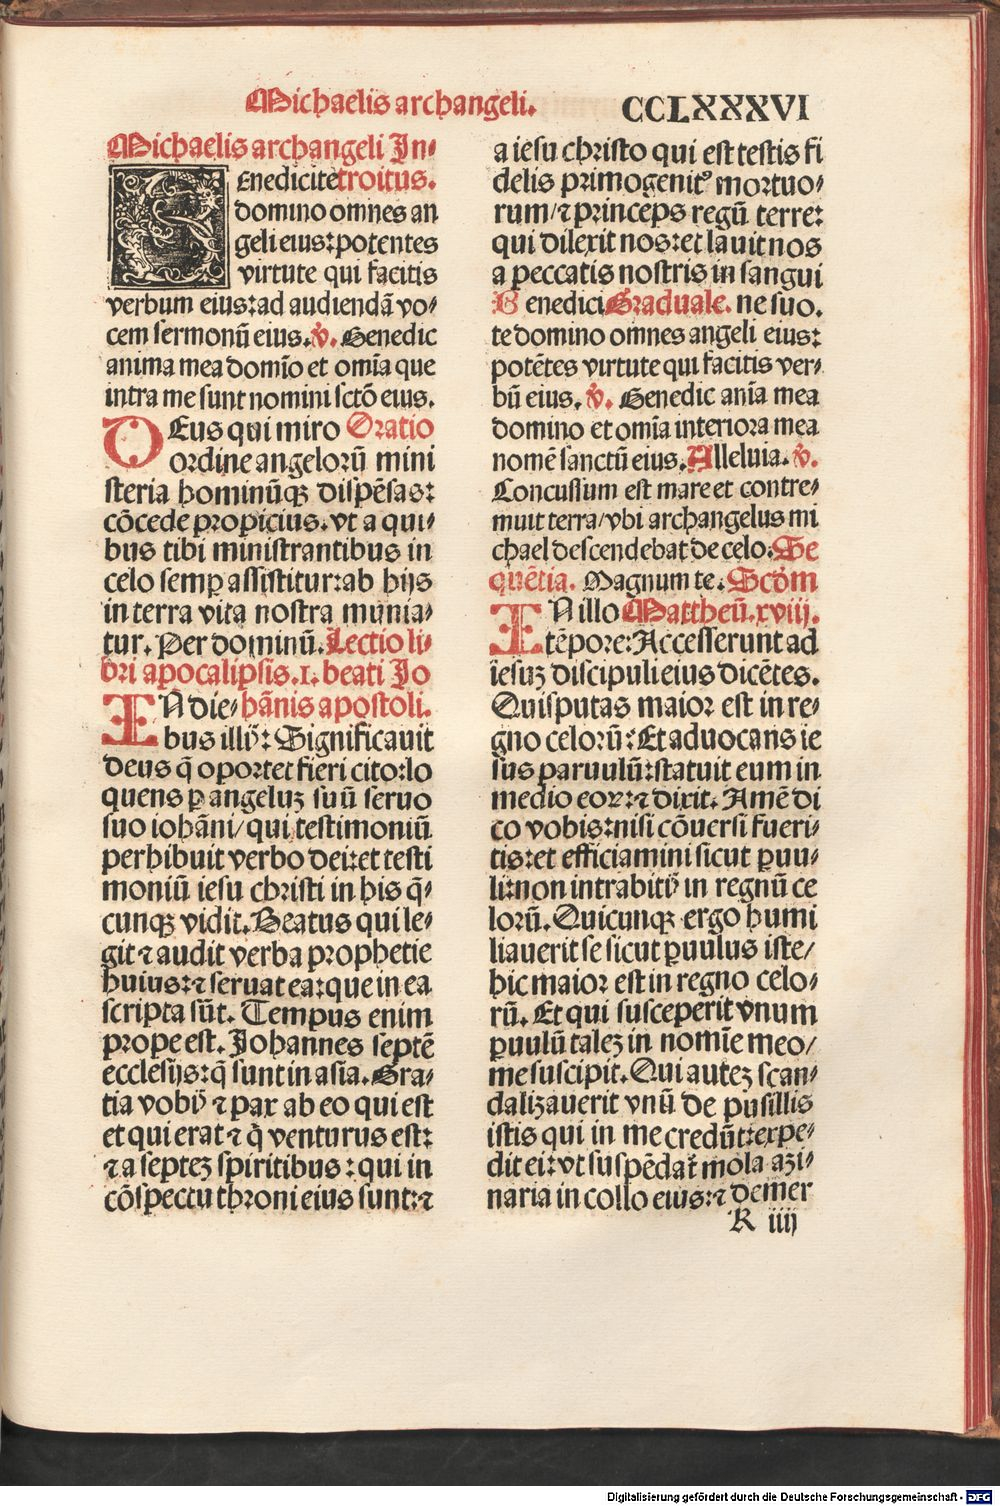 Michaelis archangeli.
CCLXXXVI
Michaelis archangeli In⸗
Benedicite troitus.
domino omnes an
geli eius: potentes
virtute qui facitis
verbum eius: ad audiendā vo⸗
cem sermonū eius. ℣. Benedic
anima mea domīo et om̄ia que
intra me sunt nomini sctō eius.
DEus qui miro Oratio
ordine angelorū mini
steria hominūqꝫ dispēsas:
cōcede propicius. vt a qui⸗
bus tibi ministrantibus in
celo semꝑ assistitur: ab hijs
in terra vita nostra munia⸗
tur. Per dominū. Lectio li⸗
bri apocalipsis. 1. beati Jo
IN die⸗ hānis apostoli.
bus illꝭ: Significauit
deus q̄ oportet fieri cito: lo
quens ꝑ angeluꝫ suū seruo
suo iohāni/ qui testimoniū
perhibuit verbo dei: et testi
moniū iesu christi in his q̄⸗
cunqꝫ vidit. Beatus qui le⸗
git ⁊ audit verba prophetie
huius: ⁊ seruat ea: que in ea
scripta sūt. Tempus enim
prope est. Johannes septē
ecclesijs: q̄ sunt in asia. Gra⸗
tia vobꝭ ⁊ pax ab eo qui est
et qui erat ⁊ q̇ venturus est:
⁊ a septeꝫ spiritibus: qui in
cōspectu throni eius sunt: ⁊
a iesu christo qui est testis fi
delis primogenitꝰ mortuo⸗
rum/ ⁊ princeps regū terre:
qui dilexit nos: et lauit nos
a peccatis nostris in sangui
Benedici Graduale. ne suo.
te domino omnes angeli eius:
potētes virtute qui facitis ver⸗
bū eius. ℣. Benedic anīa mea
domino et om̄ia interiora mea
nomē sanctū eius. Alleluia. ℣.
Concussum est mare et contre⸗
muit terra/ vbi archangelus mi
chael descendebat de celo. Se
quētia. Magnum te. Scđm
IN illo Mattheū. xviij.
tēpore: Accesserunt ad
iesuꝫ discipuli eius dicētes.
Quis putas maior est in re⸗
gno celorū? Et aduocans ie
sus paruulū: statuit eum in
medio eoꝝ: ⁊ dixit. Amē di
co vobis: nisi cōuersi fueri⸗
tis: et efficiamini sicut ꝑuu⸗
li: non intrabitꝭ in regnū ce
lorū. Quicunqꝫ ergo humi
liauerit se sicut ꝑuulus iste/
hic maior est in regno celo⸗
rū. Et qui susceperit vnum
ꝑuulū taleꝫ in nomīe meo/
me suscipit. Qui auteꝫ scan⸗
daliꝫauerit vnū de pusillis
istis qui in me credūt: expe⸗
dit ei: vt suspēdat̉ mola asi⸗
naria in collo eius: ⁊ demer
R iiij
Digitalisierung gefördert durch die Deutsche Forschungsgemeinschaft - DFG